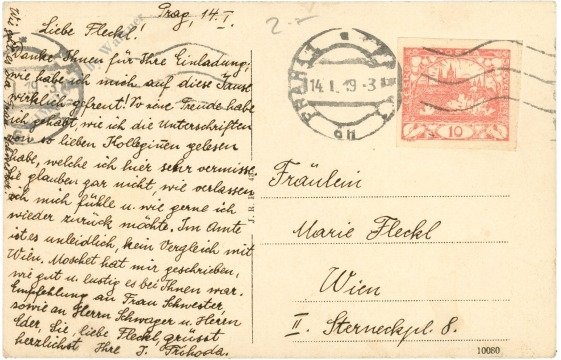 Prag, 14.I.
Liebe Fleckl!
Danke Ihnen für Ihre Einladung,
wie habe ich mich auf diese Jause
wirklich gefreut! So eine Freude habe
ich gehabt, wie ich die Unterschriften
von so lieben Kolleginen gelesen
habe, welche ich hier sehr vermisse.
Sie glauben gar nicht, wie verlassen
ich mich fühle u. wie gerne ich
wieder zurück möchte. Im Amte
ist es unleidlich, kein Vergleich mit
Wien. Moschet hat mir geschrieben,
wie gut u. lustig es bei Ihnen war.
Empfehlung an Frau Schwester
sowie an Herrn Schwager u. Herrn
Eder. Sie, liebe Fleckl, grüsst
herzlichst Ihre J. Příhoda.
2.-
PRAHA
14.I.19-3
10
Fräulein
Marie Fleckl
Wien
II. Sterneckpl. 8.
10080